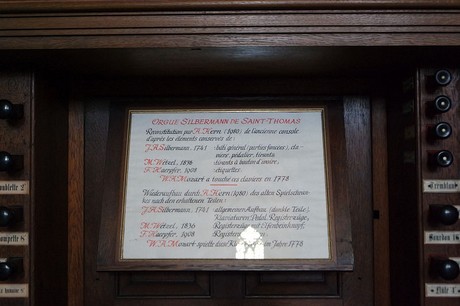 ORGUE SILBERMANN DE SAINT-THOMAS
Reconstitution par A. Kern (1980) de l'ancienne console
d'après les éléments conservés de:
J.A. Silbermann, 1741 : bâti général (parties foncées), cla-
vier, pédalier, tirants
M. Wetzel, 1836 : tirants à bouton d'ivoire;
F. Haerpfer, 1908 : étiquettes
W.A. Mozart a touché ce clavier en 1778
Wiederaufbau durch A. Kern (1980) des alten Spielschran-
kes nach den erhaltenen Teilen:
J.A. Silbermann, 1741 : allgemeiner Aufbau (dunkle Teile),
Klaviaturen, Pedal, Registerzüge,
M. Wetzel, 1836 : Registerzüge mit Elfenbeinknopf;
F. Haerpfer, 1908
W.A. Mozart spielte diese im Jahre 1778
Doublette 1
Trompette 1
Tremblant
Bourdon
Flûte